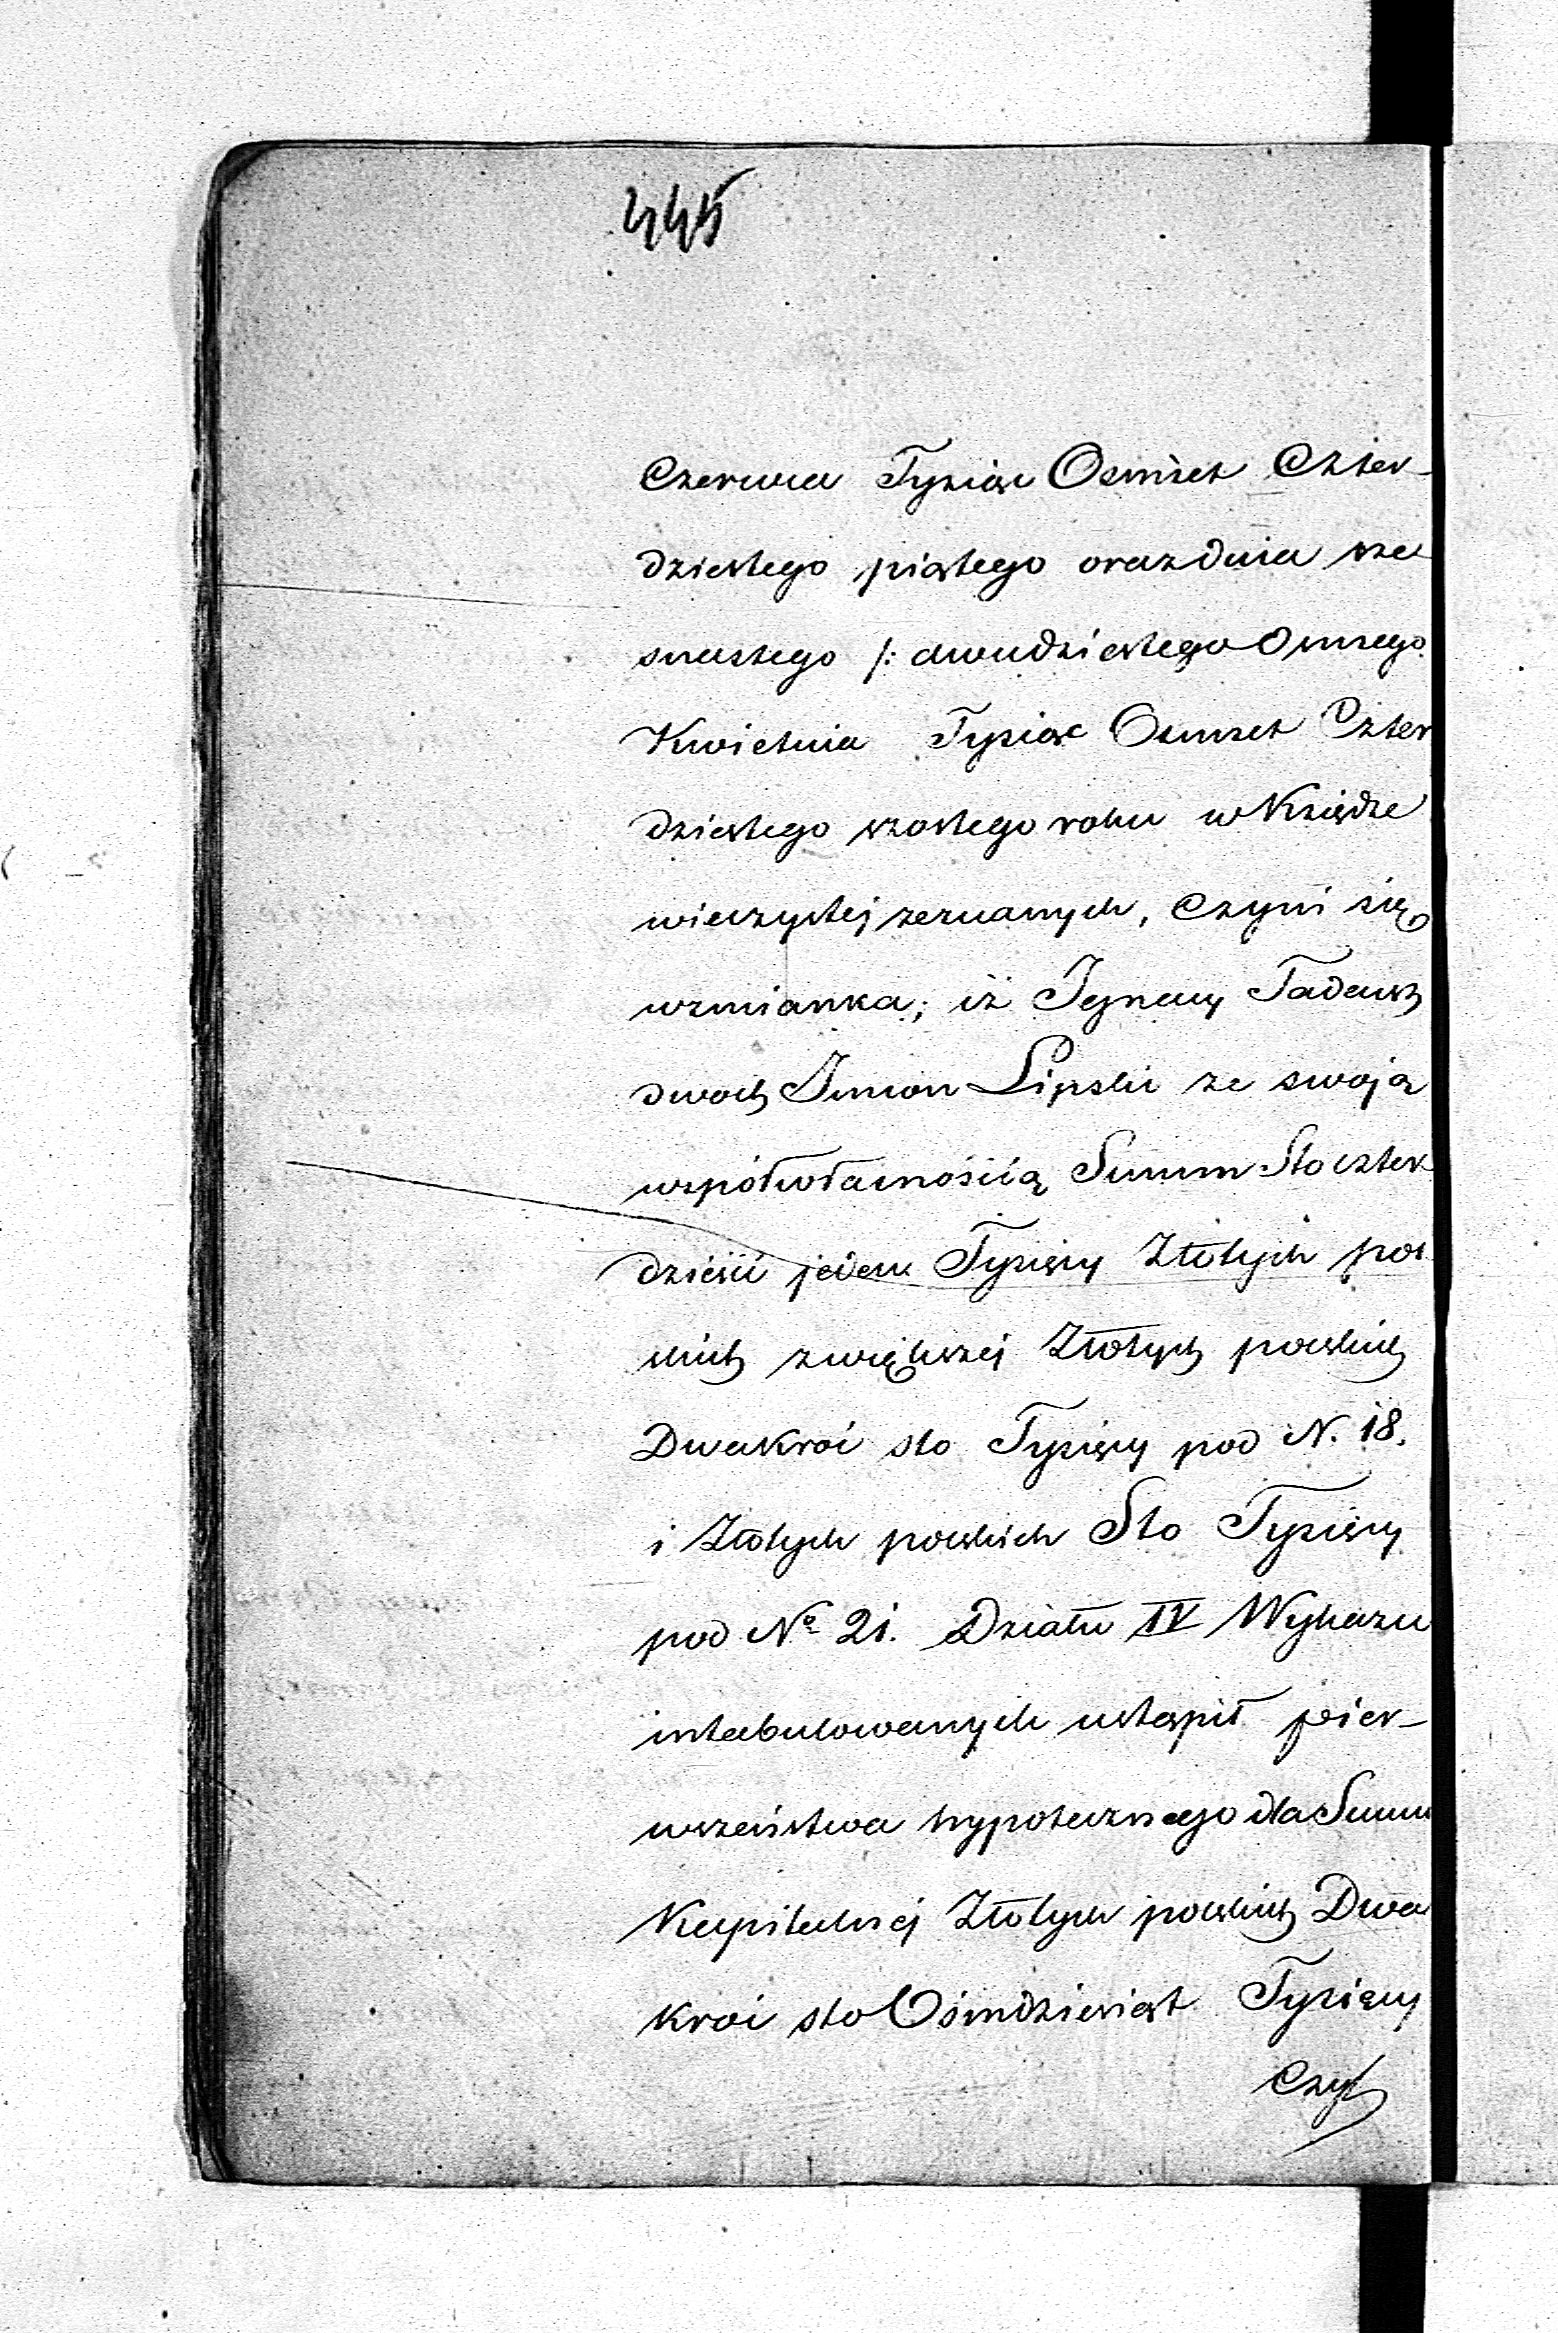 445
Czerwca Tysiąc Osmset Czter-
dziestego piątego oraz dnia sze
snastego /: dwudziestego Osmego
Kwietnia Tysiąc Osmset Czter
dziestego szostego roku w Księdze
wieczystej zeznanych, czyni się
wzmianka; iż Ignacy Tadeusz
dwoch Imion Lipski ze swoją
współwłasnością Summ Sto czter
dzieści jeden Tysięcy Złotych pol
skich z większej Złotych polskich
Dwakroć sto Tysięcy pod N. 18.
i Złotych polskich Sto Tysięcy
pod No 21. Działu IV Wykazu
intabulowanych ustąpił pier-
wszeństwa hypotecznego dla Summ
Kapitalnej Złotych polskich Dwa
kroć sto Ośmdziesiąt Tysięcy